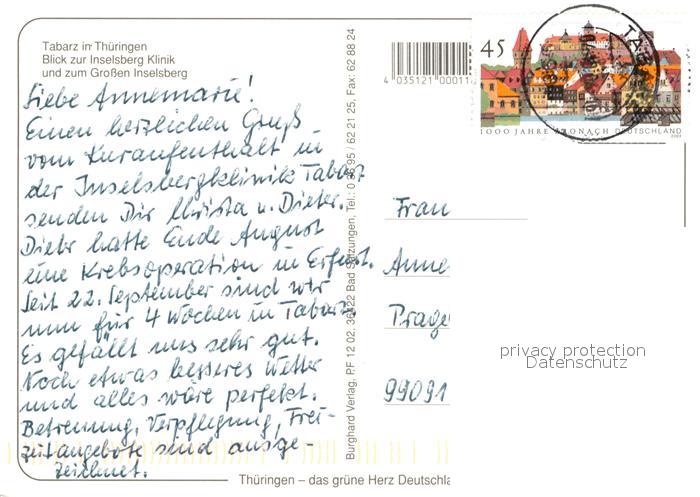 Tabarz in Thüringen
Blick zur Inselsberg Klinik
und zum Großen Inselsberg
Liebe Annemarie!
Einen herzlichen Gruß
vom Kuraufenthalt in
der Inselsbergklinik Tabarz
senden Dir Christa u. Dieter.
Dieter hatte Ende August
eine Krebsoperation in Erfurt.
Seit 22. September sind wir
nun für 4 Wochen in Tabarz.
Es gefällt uns sehr gut.
Noch etwas besseres Wetter
und alles wäre perfekt.
Betreuung, Verpflegung, Frei-
zeitangebote sind ausge-
zeichnet.
Burghard Verlag, PF 12 02, 36422 Bad Salzungen, Tel.: 0 36 95 / 62 21 25, Fax: 62 88 24
4 035121 00011
45
1000 JAHRE KRONACH DEUTSCHLAND
Frau
Anne
Prage
99091
privacy protection
Datenschutz
Thüringen – das grüne Herz Deutschla